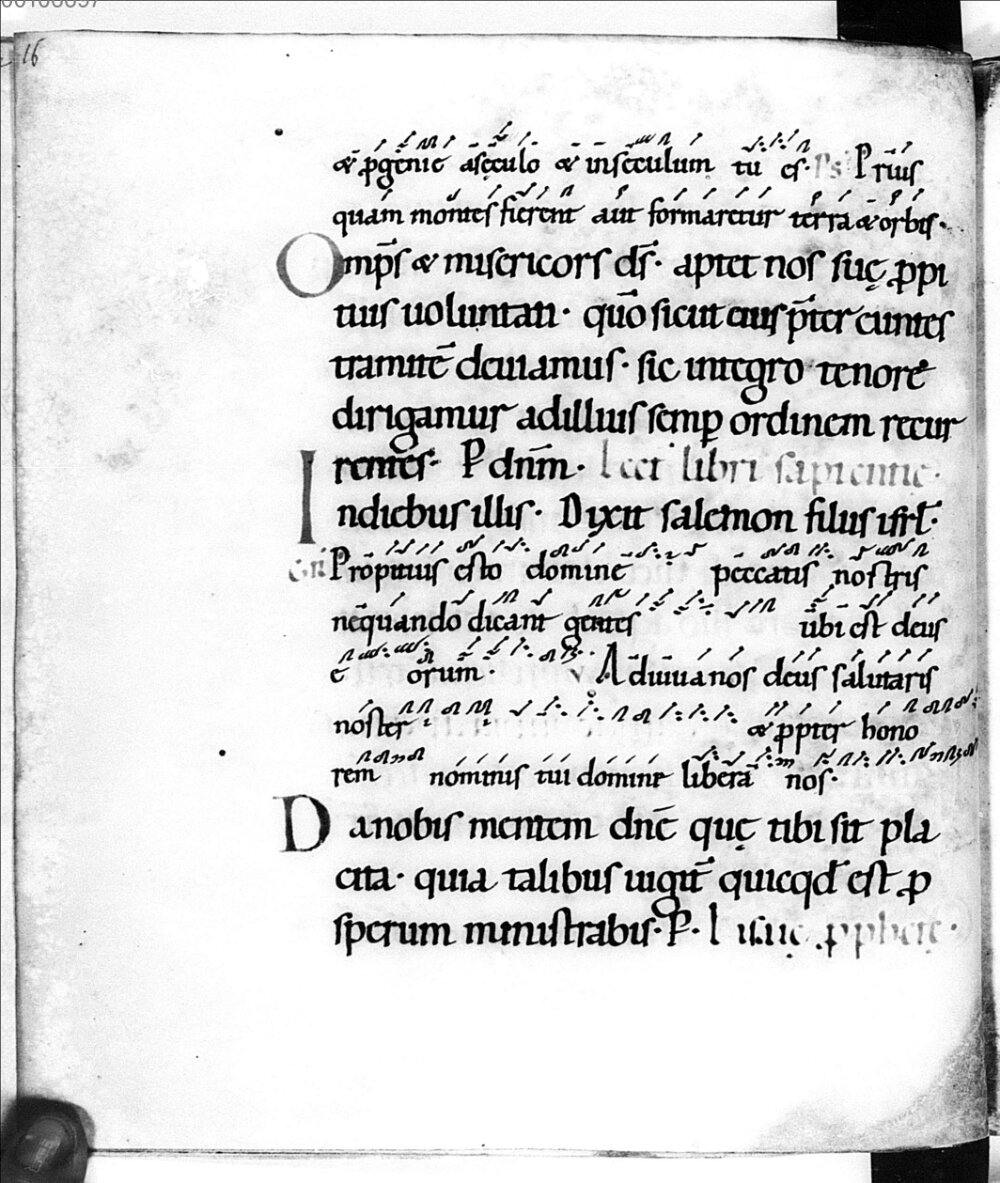 16
& ꝓgenie asęculo & insęculum tu es· Ps Prius
quam montes fierent aut formaretur terra & orbis·
Omp̄s & misericors d̄s· aptet nos suę ꝓpi
tius uoluntati· quō sicut eius p̄ter euntes
tramitē deuiamus· sic integro tenore
dirigamur adillius semꝑ ordinem recur
rentes· P dn̄m· Lect libri sapientie·
Indiebus illis· Dixit salemon filius isrl̄·
GR Propitius esto domine peccatis nostris
nequando dicant gentes ubi est deus
eorum· V Adiuua nos deus salutaris
noster & ꝓpter hono
rem nominis tui domine libera nos·
Danobis mentem dn̄e quę tibi sit pla
cita· quia talibus iugit̄ quicqd̄ est ꝓ
sperum ministrabis· P· L isaię ꝓphetę·